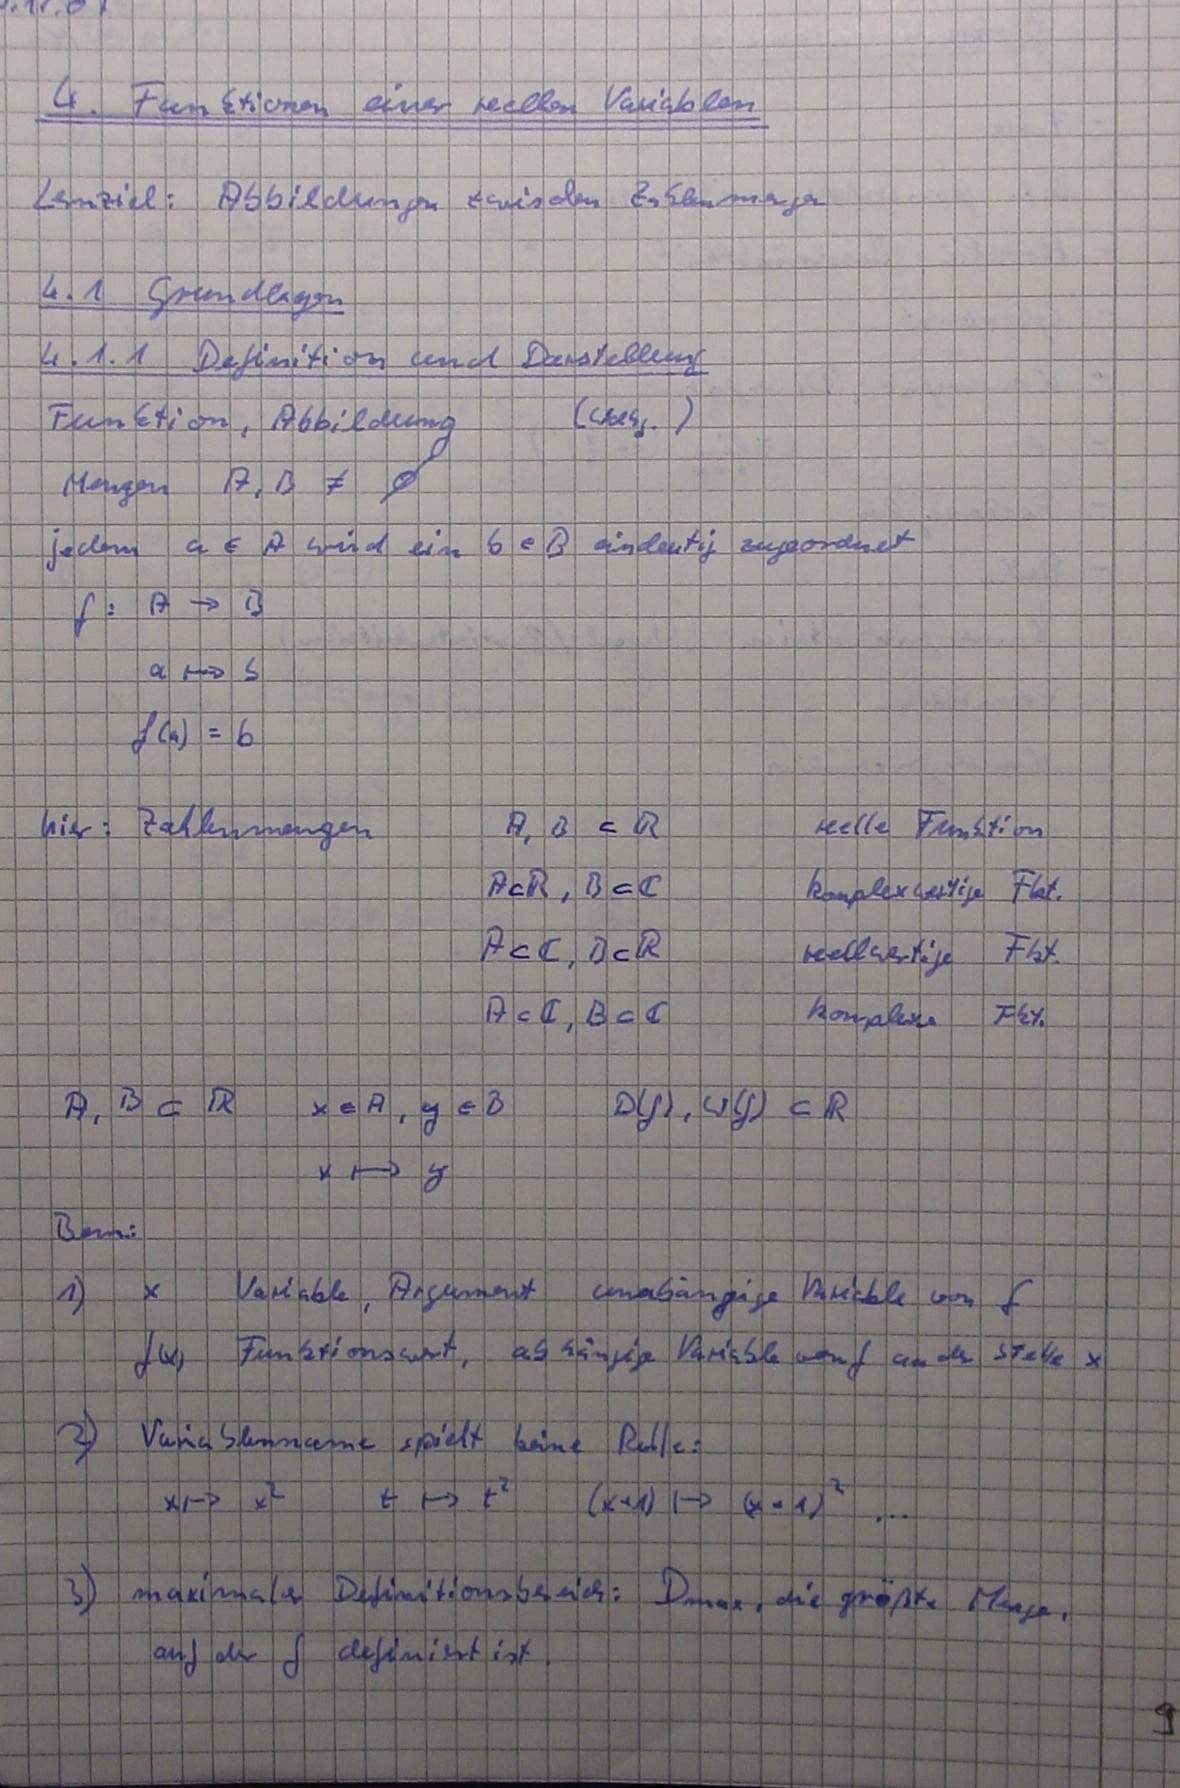 4. Funktionen einer reellen Variablen
Lernziel: Abbildungen zwischen Zahlenmengen
4.1 Grundlagen
4.1.1 Definition und Darstellung
Funktion, Abbildung
Mengen A, B ≠ ∅
jedem a ∈ A wird ein b ∈ B eindeutig zugeordnet
f: A → B
a ↦ b
f(a) = b
hier: Zahlenmengen A, B ⊂ ℝ reelle Funktion
A⊂ℝ, B⊂ℂ komplexwertige Fkt.
A⊂ℂ, B⊂ℝ reellwertige Fkt.
A⊂ℂ, B⊂ℂ komplexe Fkt.
A, B ⊂ ℝ x∈A, y∈B D(f), W(f) ⊂ ℝ
x ↦ y
Bem:
1) x Variable, Argument unabängige Variable von f
f(x) Funktionswert, abhängige Variable von f an der Stelle x
2) Variablenname spielt keine Rolle:
x ↦ x² t ↦ t² (x+1) ↦ (x+1)² ...
3) maximaler Definitionsbereich: Dmax, die größte Menge,
auf der f definiert ist.
9